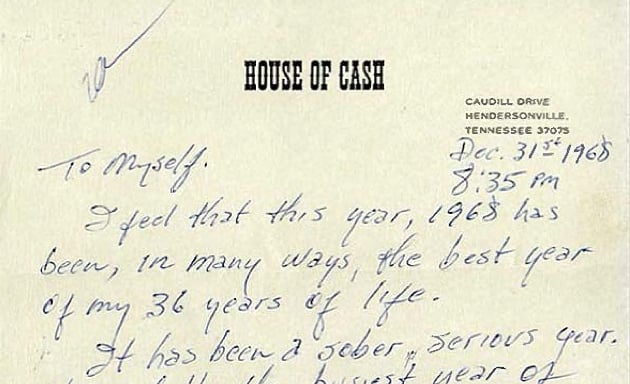 HOUSE OF CASH
CAUDILL DRIVE
HENDERSONVILLE,
TENNESSEE 37075
Dec. 31st 1968
8:35 pm
To Myself.
I feel that this year, 1968 has
been, in many ways, the best year
of my 36 years of life.
It has been a sober, serious year.
busiest year of